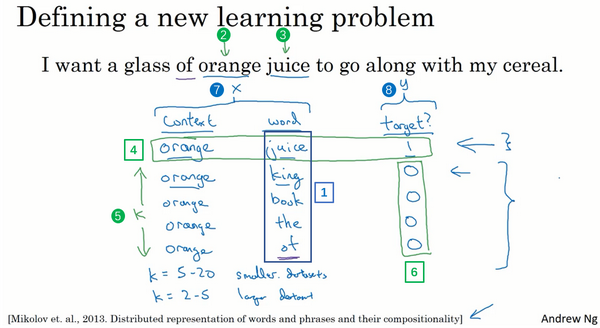 Defining a new learning problem
2 3
I want a glass of orange juice to go along with my cereal.
7 x 8 y
context word target?
4 orange juice 1
orange king 0
orange book 0 1
5 k orange the 0
orange of 0
k = 5-20 smaller datasets 6
k = 2-5 larger dataset
[Mikolov et. al., 2013. Distributed representation of words and phrases and their compositionality] Andrew Ng